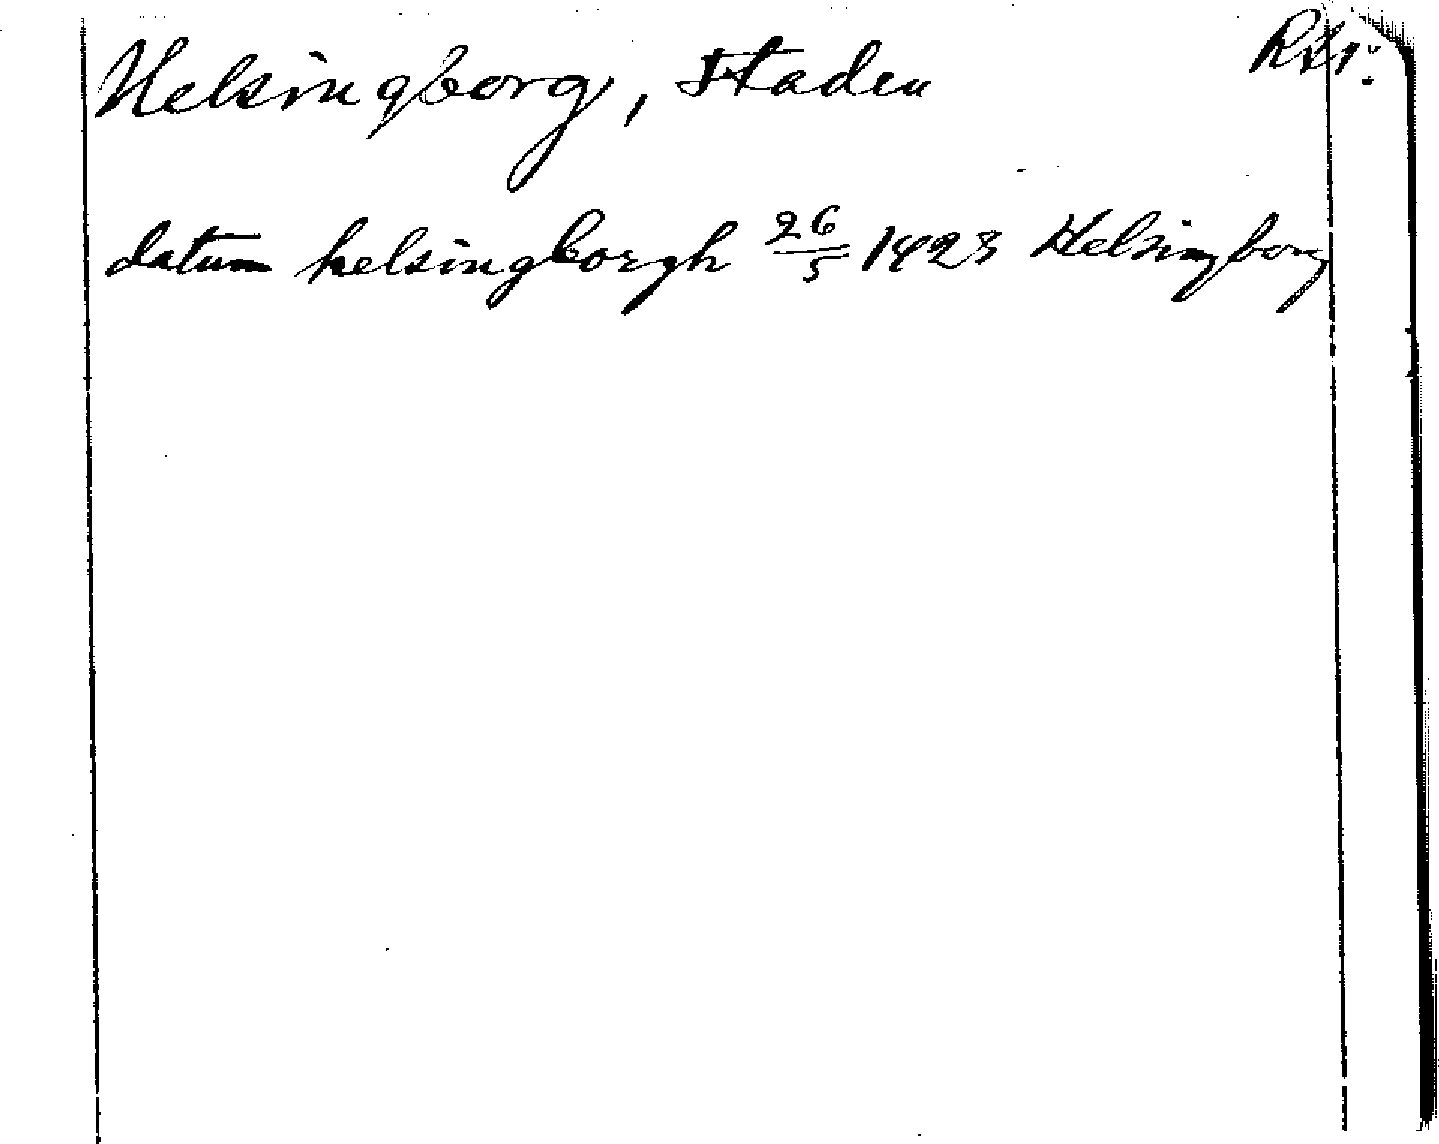 Helsingborg, Staden
datum helsingborgh 26/5 1423 Helsingborg